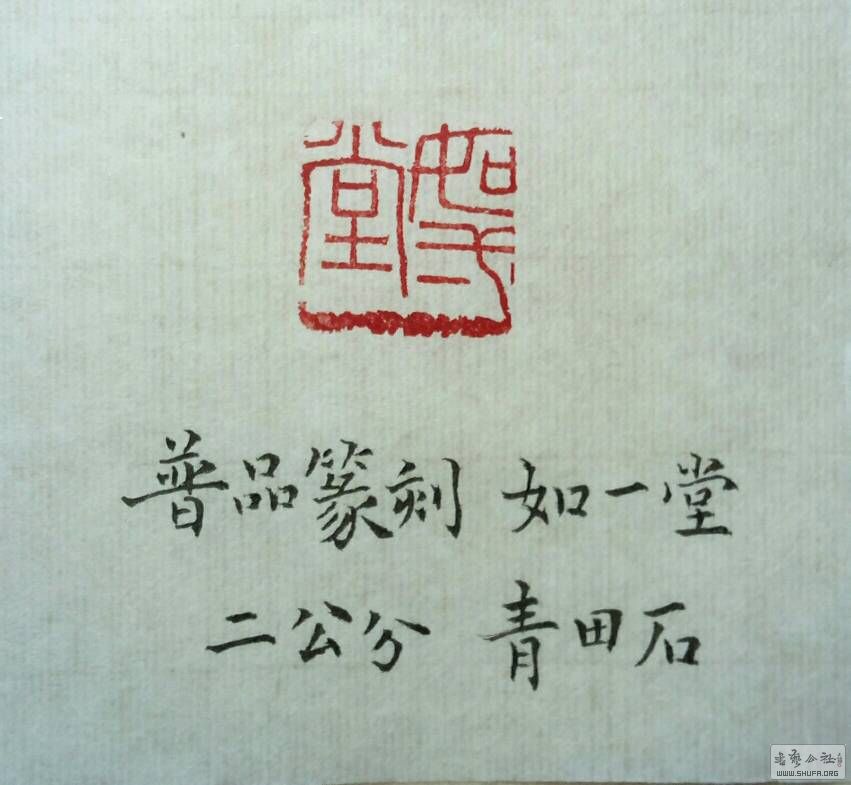 如弌堂
普品篆刻 如一堂
二公分 青田石
WWW.SHUFA.ORG